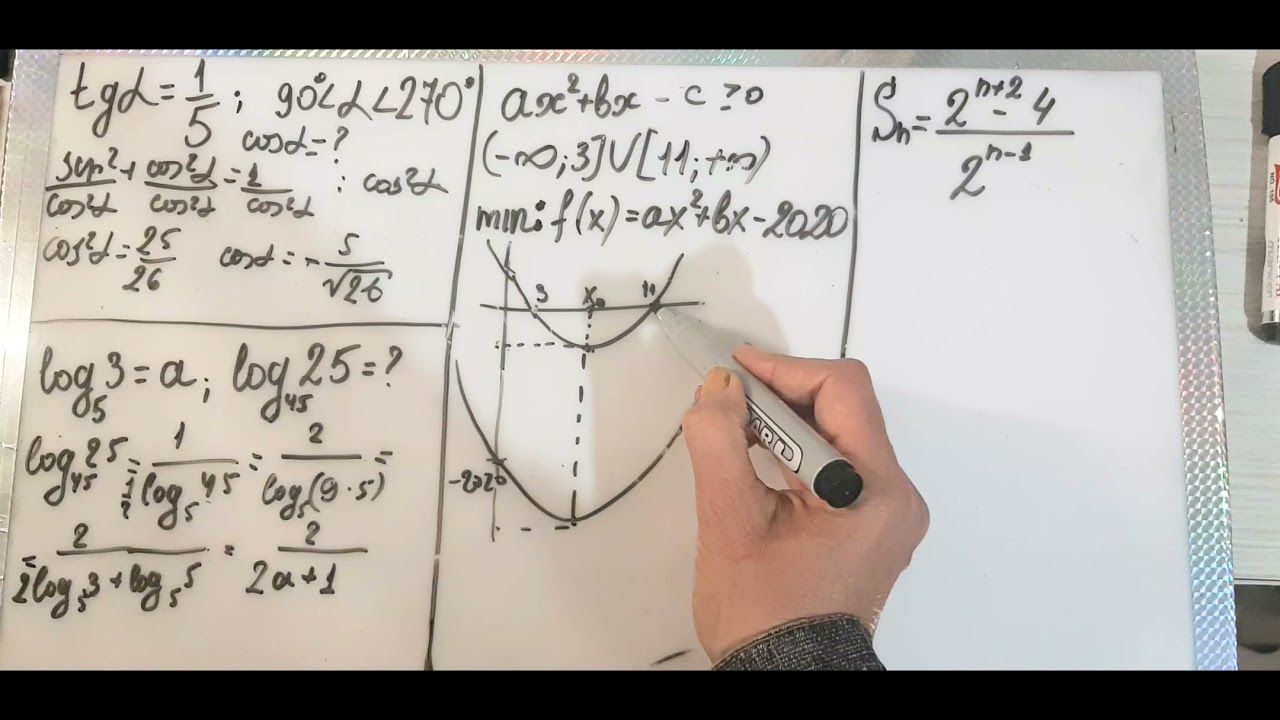 tgα = 1/5 ; 90° < α < 270°
cosα = ?
sin²/cos²α + cos²α/cos²α = 1/cos²α : cos²α
cos²α = 25/26 cosα = - 5/√26
log₅3 = a ; log₄₅25 = ?
log₄₅25 = 1/(½log₅45) = 2/log₅(9·5) =
= 2/(2log₅3 + log₅5) = 2/(2a+1)
ax² + bx - c ≥ 0
(-∞; 3] ∪ [11; +∞)
min: f(x) = ax² + bx - 2020
3 x₀ 11
-2020
Sₙ = (2ⁿ⁺² - 4)/2ⁿ⁻¹
ARD
NO.